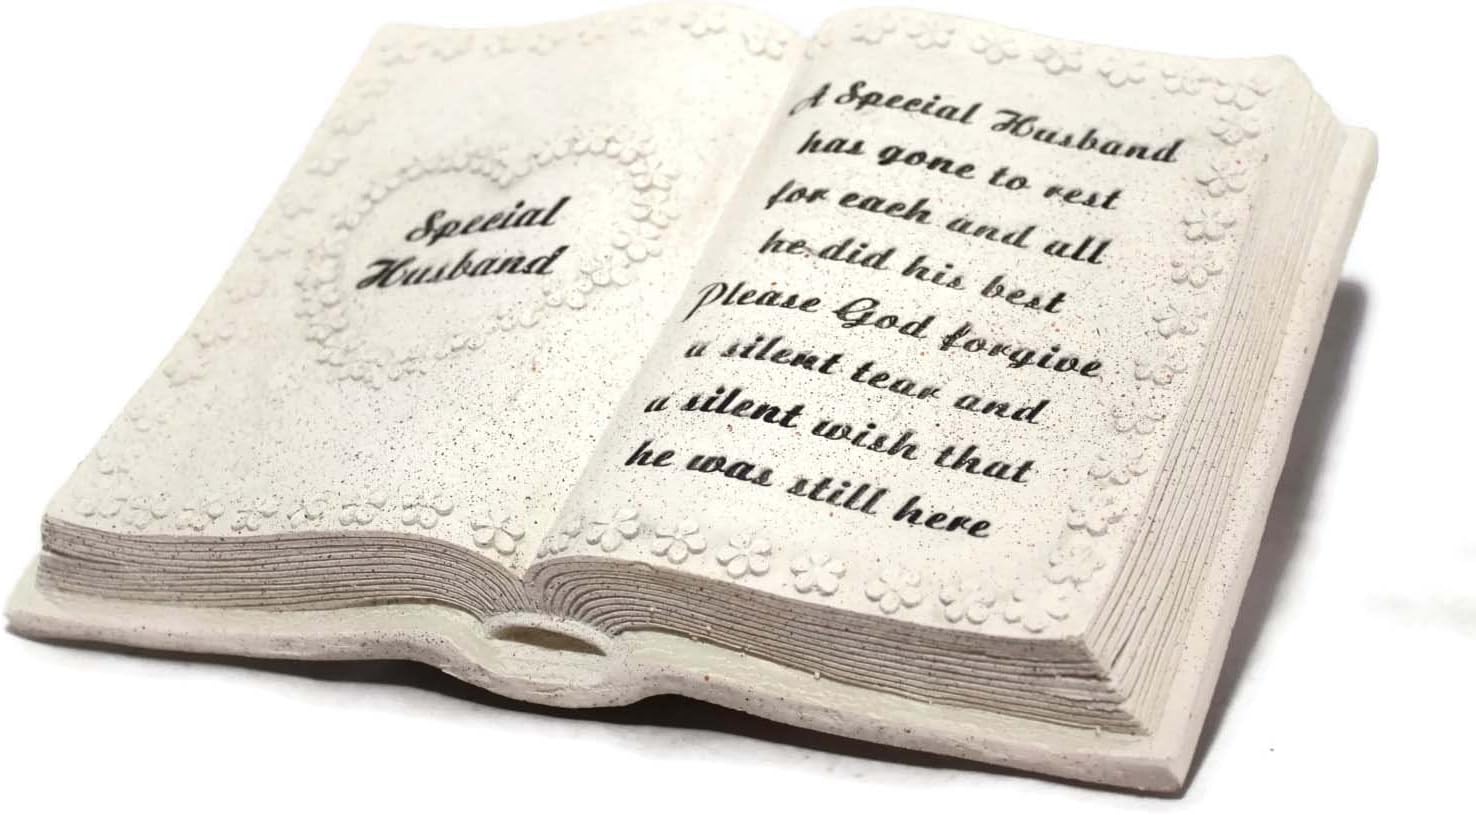 Special
Husband
A Special Husband
has gone to rest
for each and all
he did his best
Please God forgive
a silent tear and
a silent wish that
he was still here